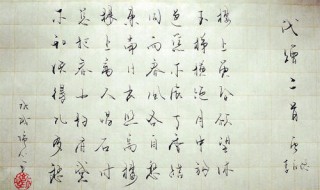 代贈二首 李商隐
楼上黄昏欲望休
玉梯横绝月中钩
芭蕉不展丁香结
同向春风各自愁
东南日出照高楼
楼上离人唱石州
总把春山扫眉黛
不知供得几多愁